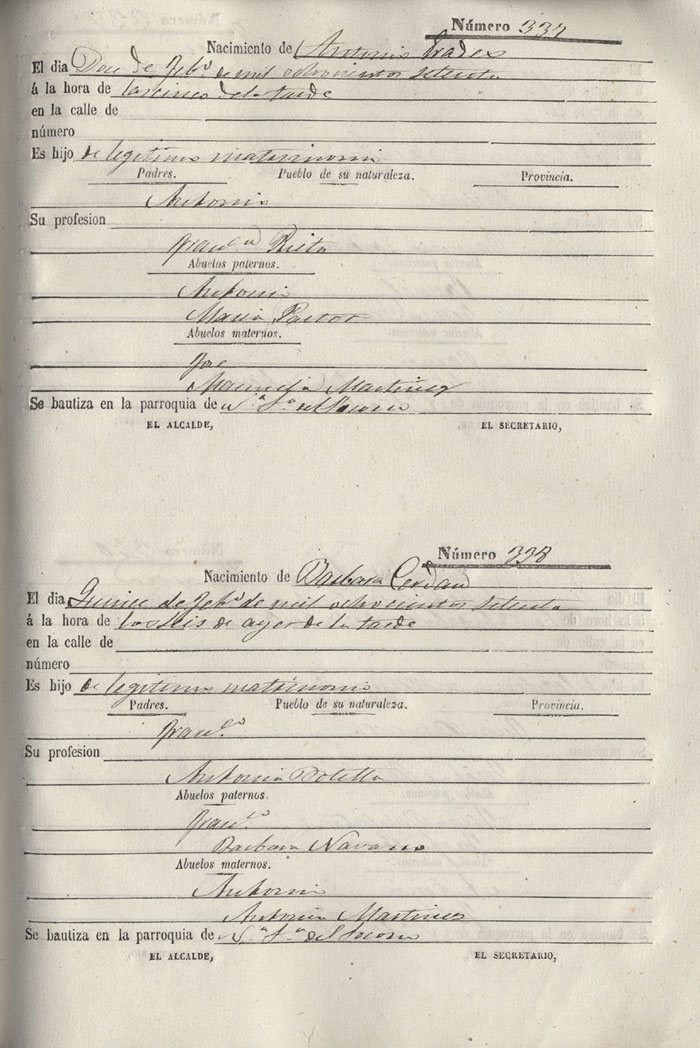 Número 337
Nacimiento de Antonio Prades
El dia Doce de Feb.º de mil ochocientos setenta
á la hora de las cinco de la tarde
en la calle de
número
Es hijo de legitimo matrimonio
Padres. Pueblo de su naturaleza. Provincia.
Antonio
Su profesion
Fran.ca Rieta
Abuelos paternos.
Antonio
Maria Pastor
Abuelos maternos.
Jose
Manuela Martinez
Se bautiza en la parroquia de N.ª S.ª del Socorro
EL ALCALDE, EL SECRETARIO,
Número 338
Nacimiento de Barbara Cerdan
El dia Quince de Feb.º de mil ochocientos setenta
á la hora de las seis de ayer de la tarde
en la calle de
número
Es hijo de legitimo matrimonio
Padres. Pueblo de su naturaleza. Provincia.
Fran.co
Su profesion
Antonia Botella
Abuelos paternos.
Fran.co
Barbara Navarro
Abuelos maternos.
Antonio
Antonia Martinez
Se bautiza en la parroquia de N.ª S.ª del Socorro
EL ALCALDE, EL SECRETARIO,